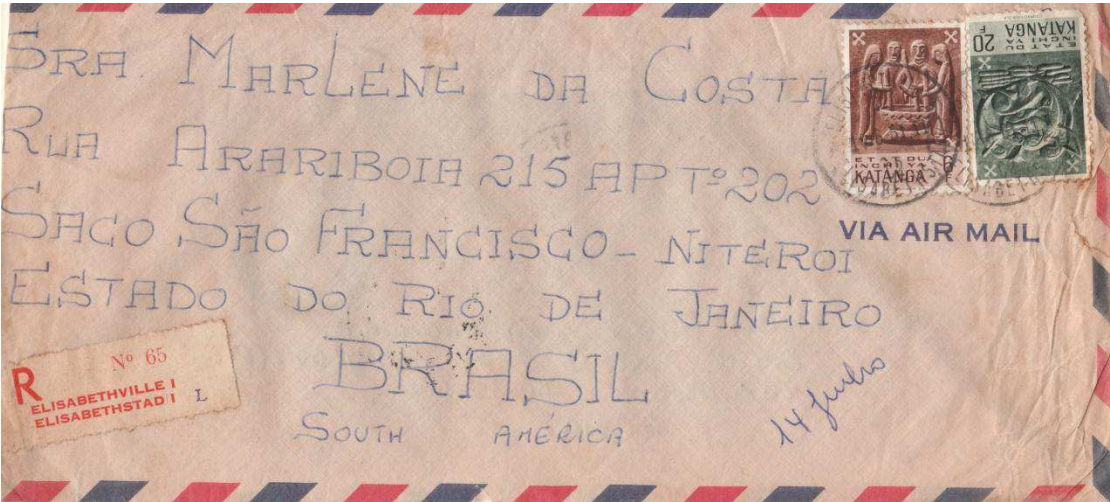 SRA. MARLENE DA COSTA
RUA ARARIBOIA 215 APTº 202
SACO SÃO FRANCISCO - NITEROI
ESTADO DO RIO DE JANEIRO
BRASIL
SOUTH AMÉRICA
14 Junho
VIA AIR MAIL
R Nº 65
ELISABETHVILLE I
ELISABETHSTAD I L
ETAT DU
INCHI YA
KATANGA
6 F
ETAT DU
INCHI YA
KATANGA
20 F